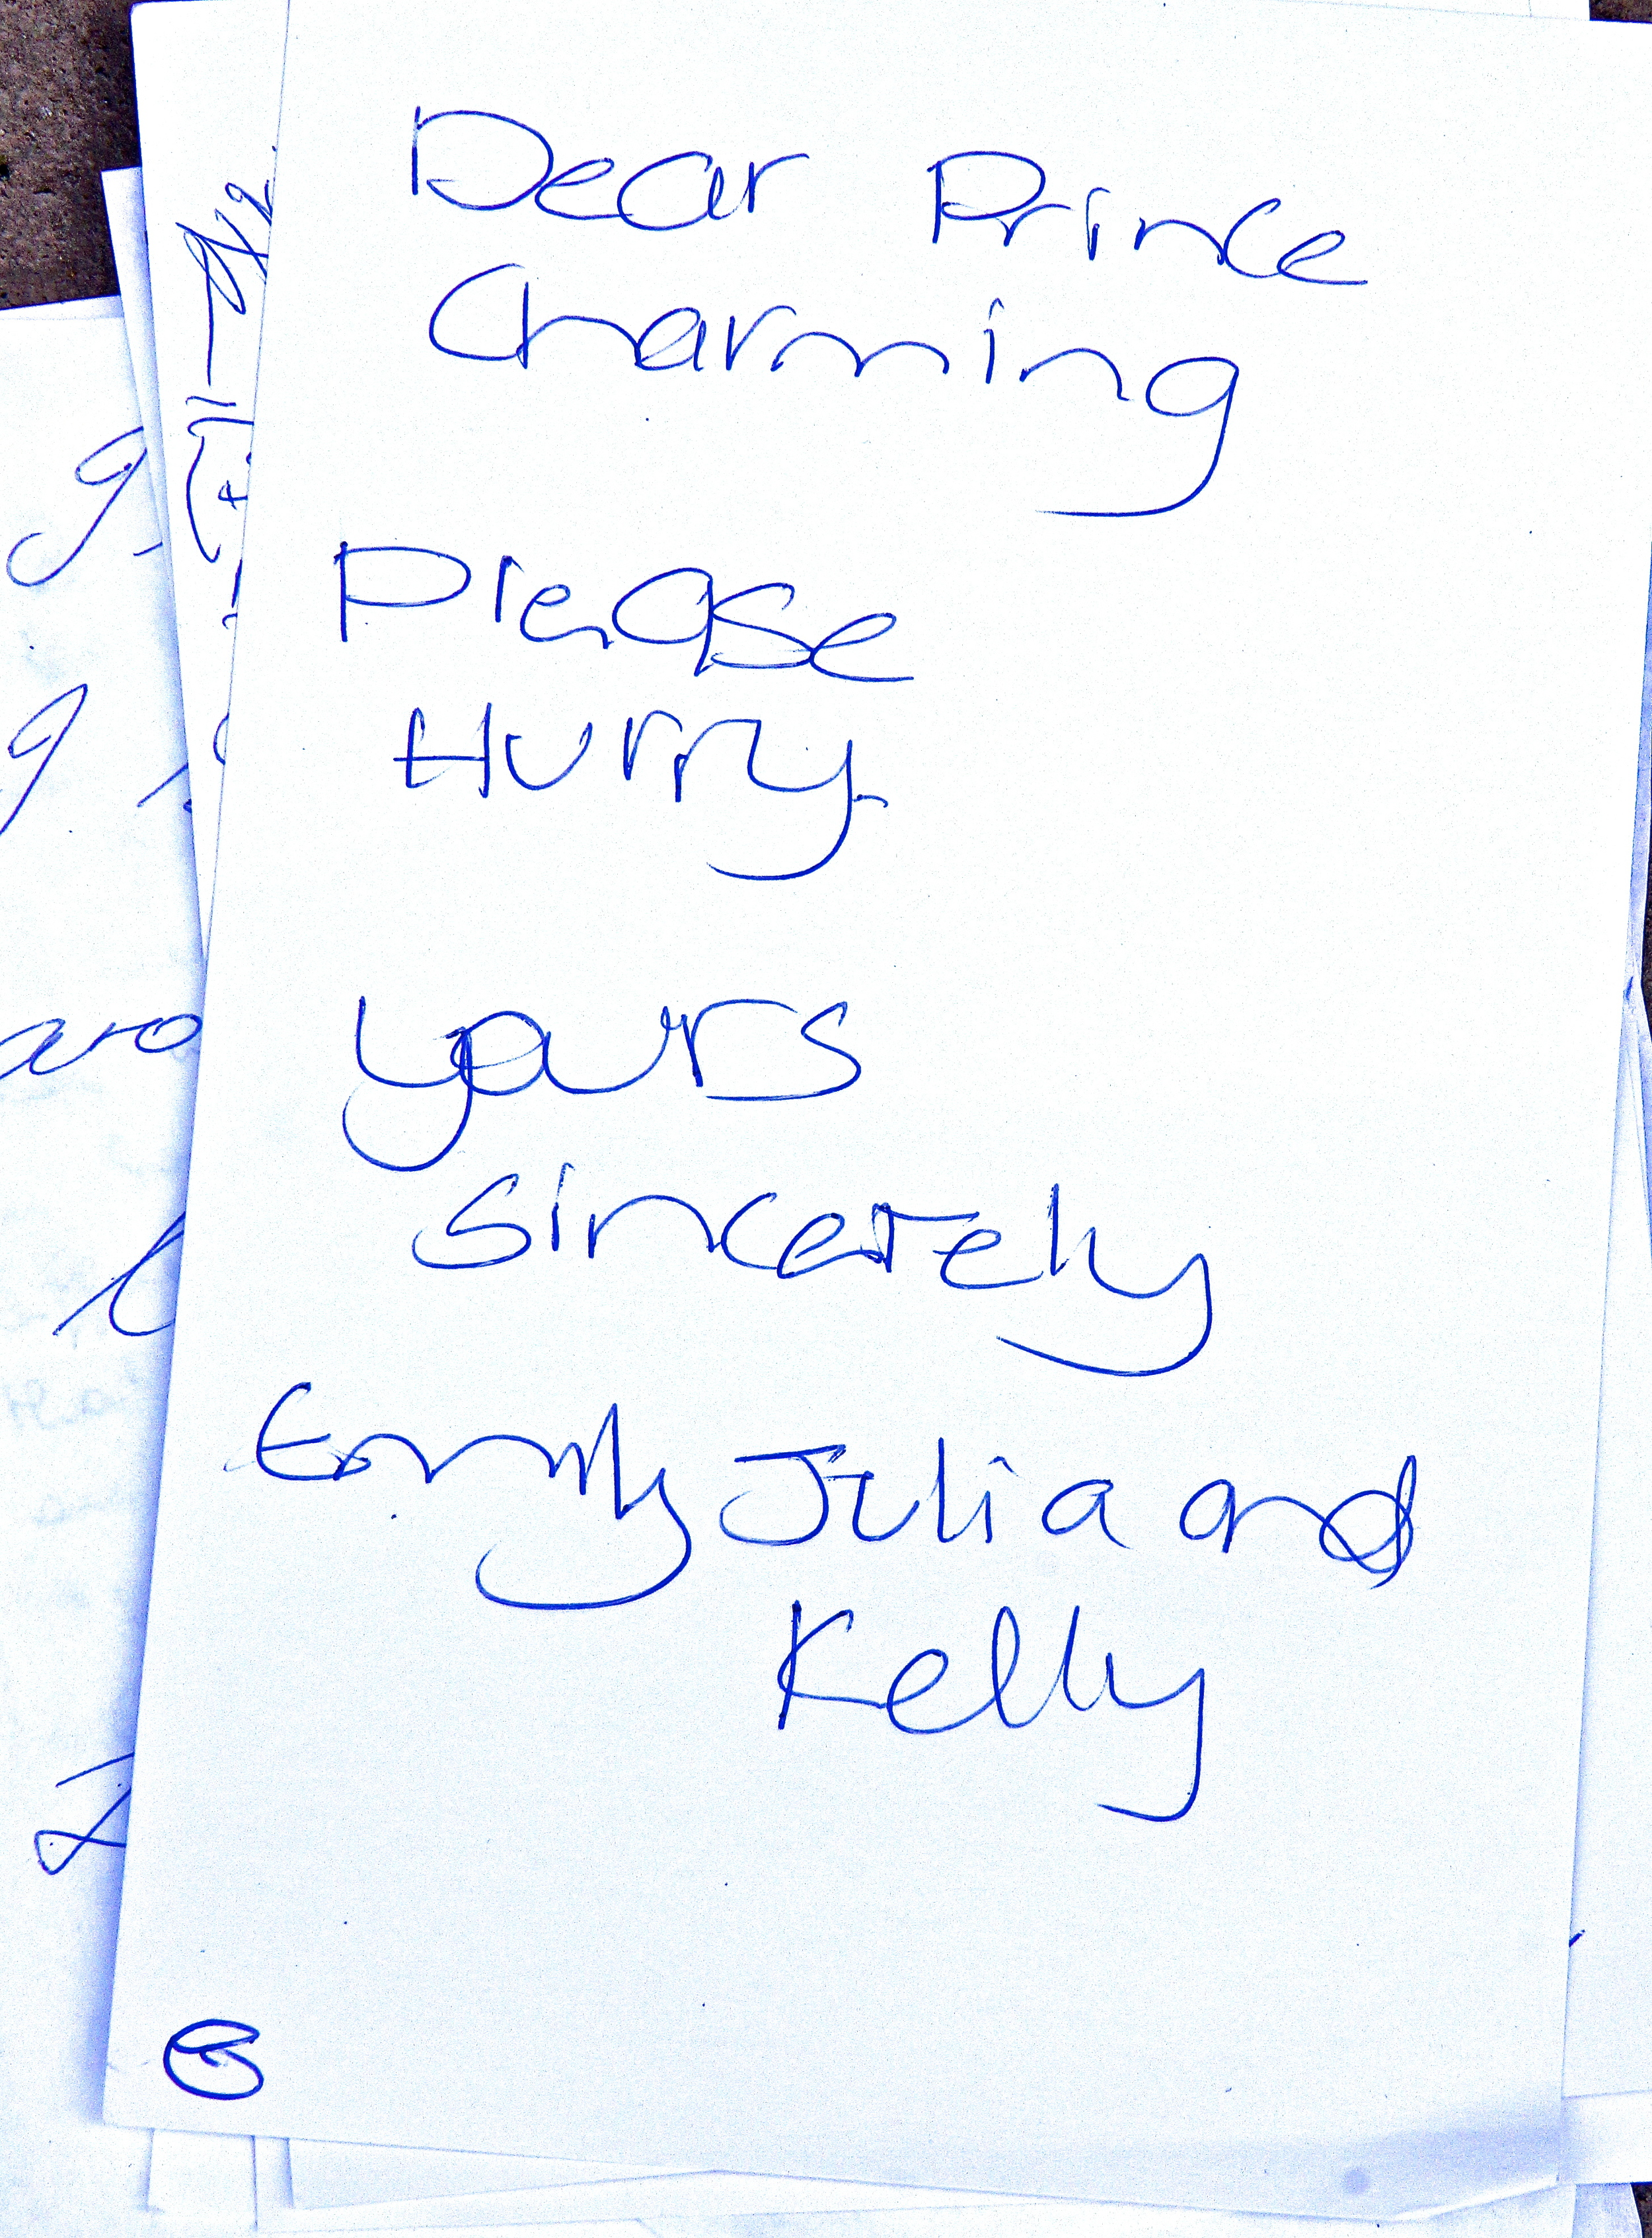 Dear Prince
Charming
Please
Hurry.
yours
sincerely
Emily Julia and
Kelly